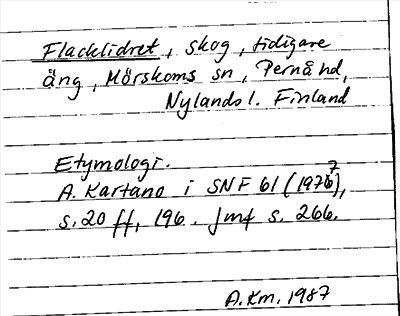 Flacklidret, skog, tidigare
äng, Mörskoms sn, Pernå hd,
Nylands l. Finland
Etymologi.
A. Kartano i SNF 61 (1977),
s. 20 ff, 196. Jmf s. 266.
A.Km. 1987